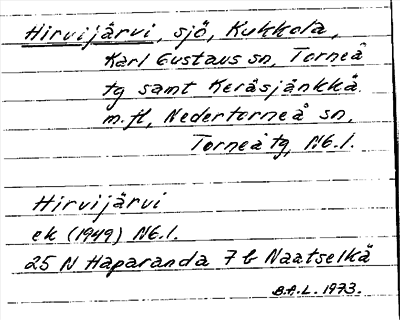 Hirvijärvi, sjö, Kukkola,
Karl Gustavs sn, Torneå
tg samt Keräsjänkkä
m.fl, Nedertorneå sn,
Torneå tg, Nb.l.
Hirvijärvi
ek (1949) Nb.l.
25 N Haparanda 7 b Naatselkä
B.A.L. 1973.